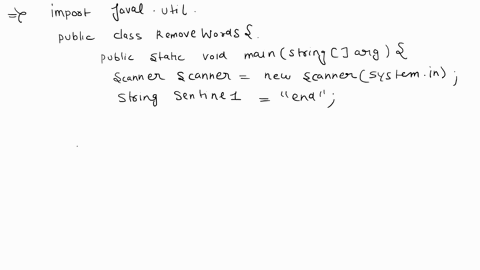 => import Java1.util.
public class RemoveWords{.
public static void main(string[] arg) {
scanner scanner = new scanner(system.in);
string sentine1 = "end";